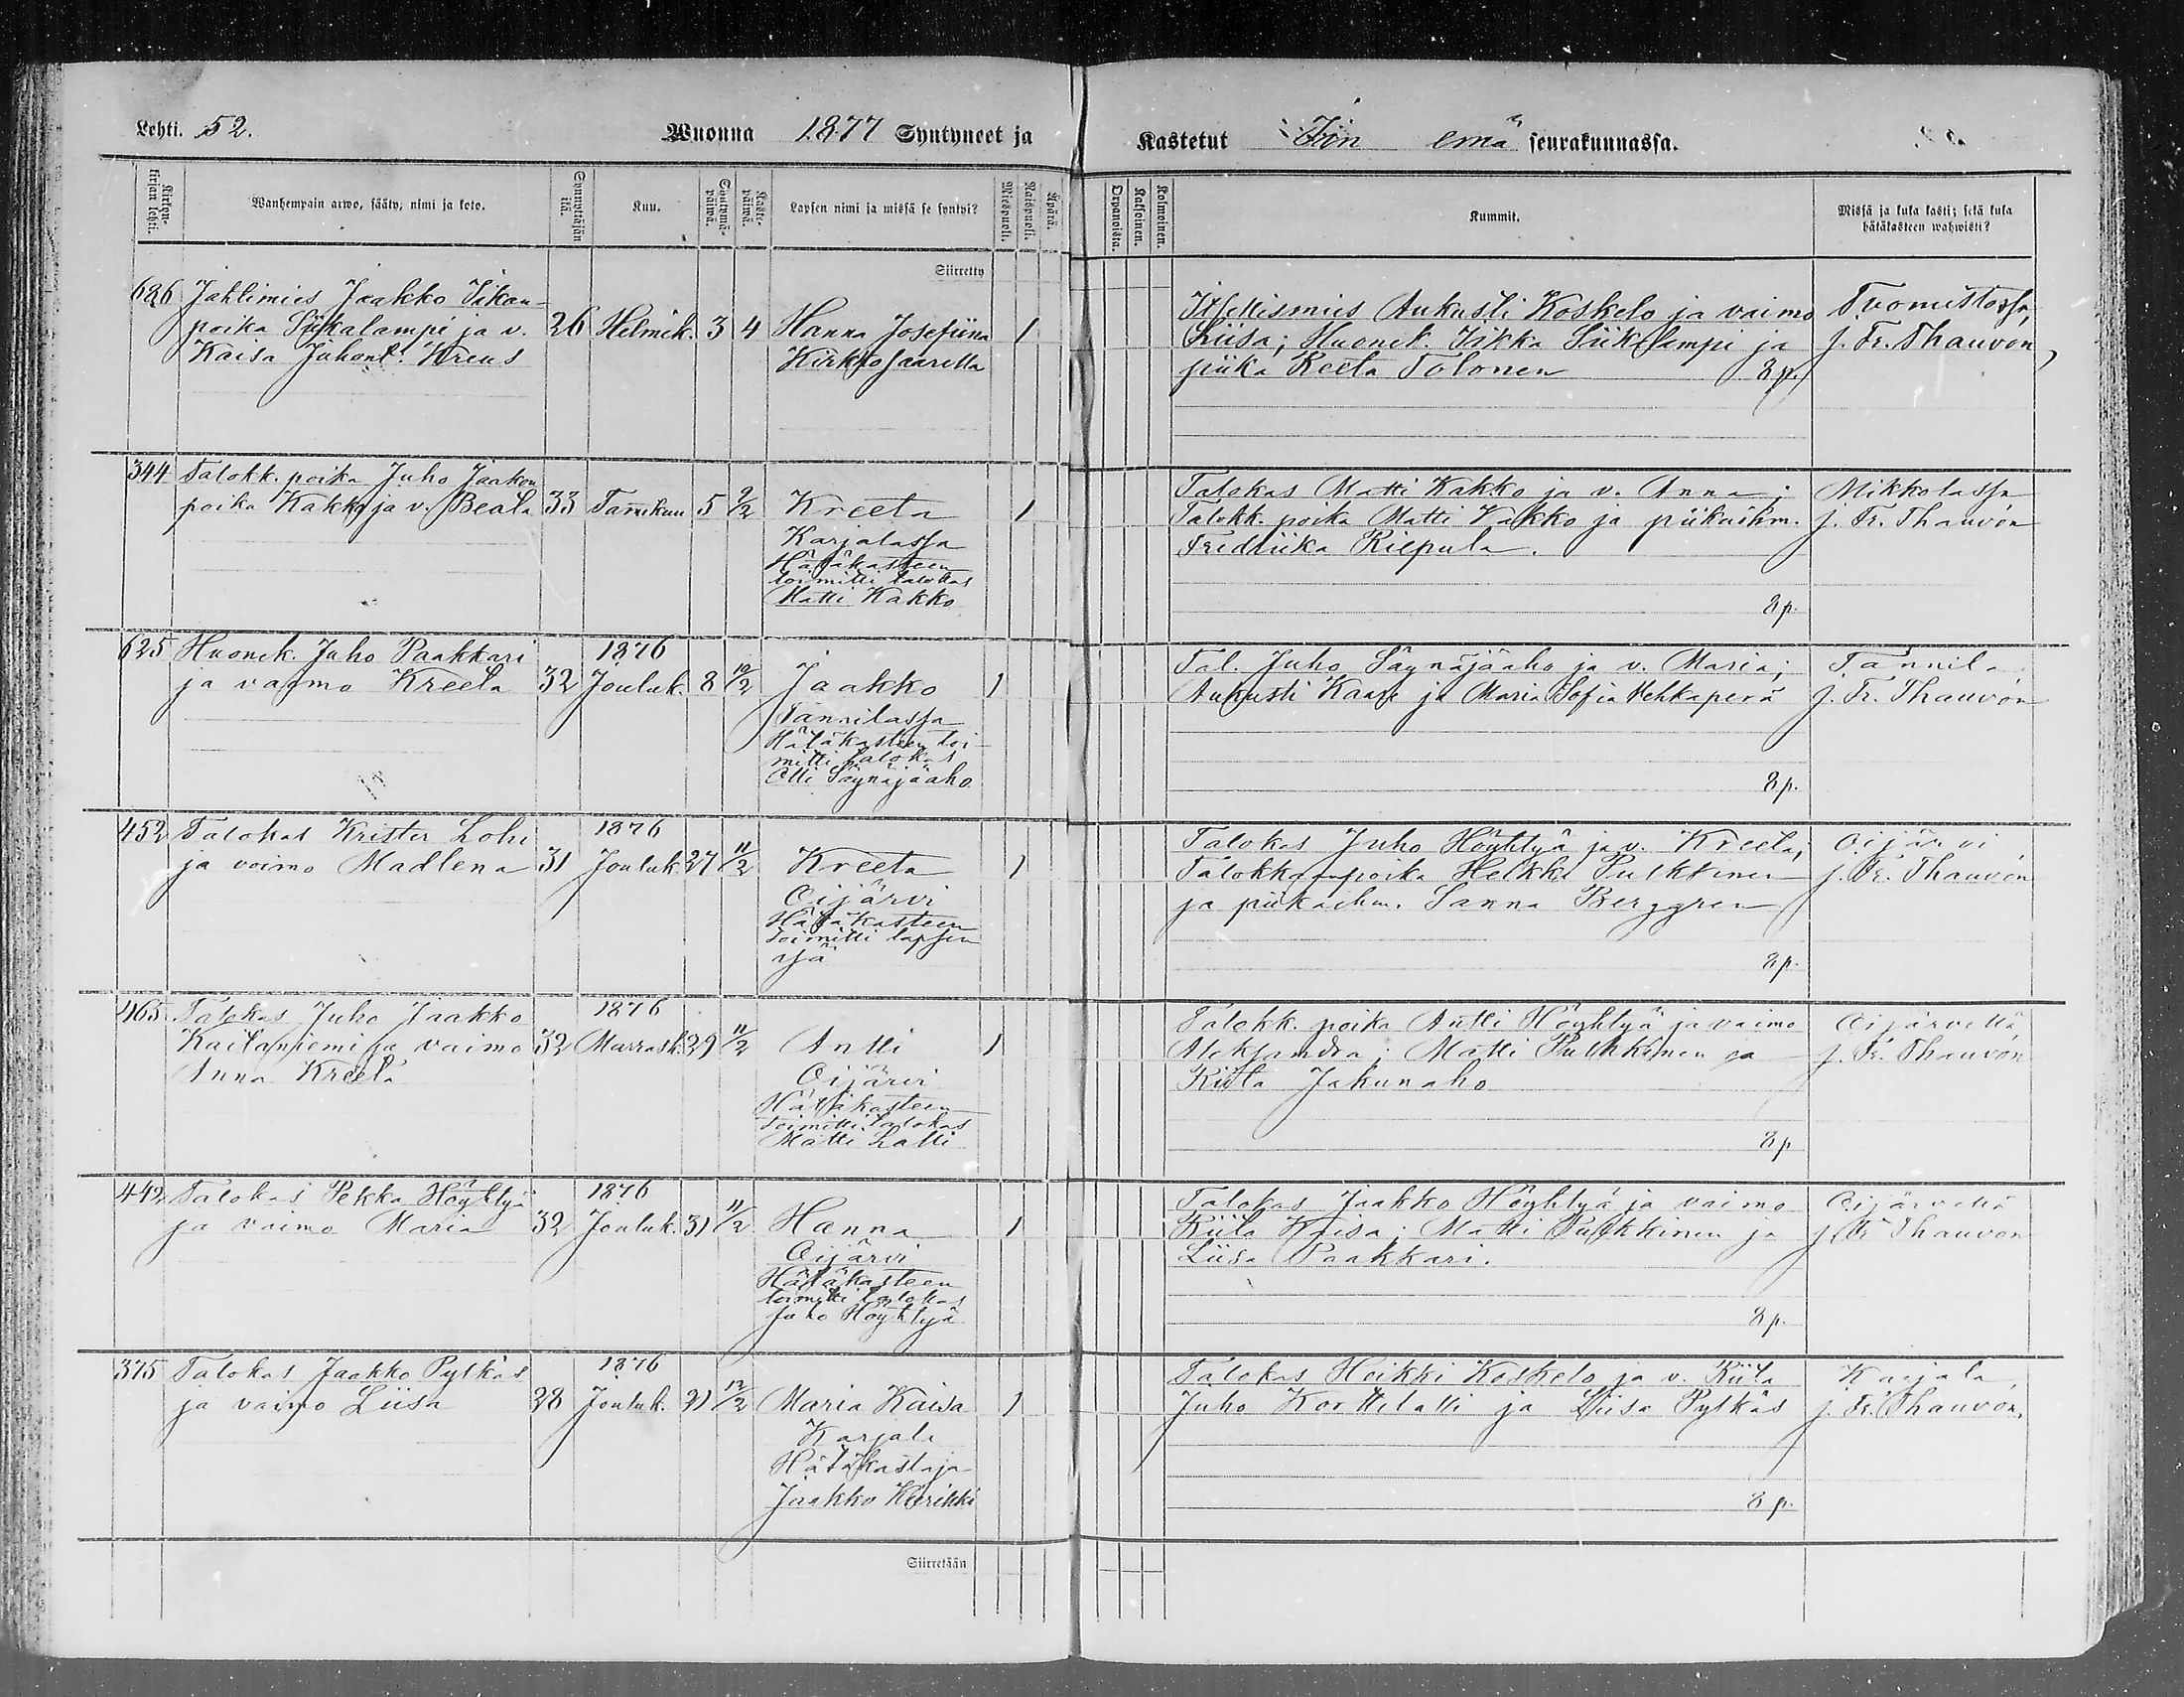 Lehti. 52.
Wuonna 1877 Syntyneet ja
Kirkon-kirjan lehti.
Wanhempain arwo, sääty, nimi ja koto.
Synnyttäjän ikä.
Kuu.
Syntymä-päiwä.
Kaste-päiwä.
Lapsen nimi ja missä se syntyi?
Miespuoli.
Naispuoli.
Äpärä.
Siirretty
686 Jahtimies Jaakko Iikan-
poika Siikalampi ja v. 26 Helmik. 3 4 Hanna Josefiina 1
Kaisa Juhont. Kreus Kirkkosaarella
344 Talokk. poika Juho Jaakon
poika Kakko ja v. Beata 33 Tammikuu 5 9/2 Kreeta 1
Karjalassa
Hätäkasteen
toimitti talokas
Matti Kakko
625 Huonek. Juho Paakkari 1876
ja vaimo Kreeta 32 Jouluk. 8 10/2 Jaakko 1
Tannilassa
Hätäkasteen toi-
mitti talokas
Olli Säynäjäaho
452 Talokas Krister Lohi 1876
ja vaimo Madlena 31 Jouluk. 27 11/2 Kreeta 1
Oijärvi
Hätäkasteen
toimitti lapsen
isä
465 Talokas Juho Jaakko 1876
Kaitaniemi ja vaimo 32 Marrask. 29 11/2 Antti 1
Anna Kreeta Oijärvi
Hätäkasteen
toimitti talokas
Matti Latti
442 Talokas Pekka Höyhtyä 1876
ja vaimo Maria 32 Jouluk. 31 11/2 Hanna 1
Oijärvi
Hätäkasteen
toimitti talokas
Juho Höyhtyä
375 Talokas Jaakko Pytkäs 1876
ja vaimo Liisa 28 Jouluk. 21 12/2 Maria Kaisa 1
Karjala
Hätäkastaja
Jaakko
Siirretään
Kastetut Iion emä seurakunnassa.
Orpanoista.
Kaksoinen.
Kolmoinen.
Kummit.
Missä ja kuka kasti; sekä kuka
hätäkasteen wahwisti?
Itsellismies Aukusti Koskelo ja vaimo Tuomistossa,
Liisa; Huonek. Iikka Siikalampi ja j. Fr. Thauvón
piika Reeta Tolonen 8 p.
Talokas Matti Kakko ja v. Anna; Mikkolassa
Talokk. poika Matti Kakko ja piikaihm. j. Fr. Thauvón
Fredriika Riepula.
8 p.
Tal. Juho Säynäjäaho ja v. Maria; Tannila
Aukusti ja Maria Sofia Vehkaperä j. Fr. Thauvón
8 p.
Talokas Juho Höyhtyä ja v. Kreeta; Oijärvi
Talokkaanpoika Heikki Pulkkinen j. Fr. Thauvón
ja piikaihm. Sanna Berggren
8 p.
Talokk. poika Antti Höyhtyä ja vaimo Oijärvellä
Aleksandra; Matti Pulkkinen ja j. Fr. Thauvón
Riita Jakunaho
8 p
Talokas Jaakko Höyhtyä ja vaimo Oijärvellä
Riita Kaisa; Matti Pulkkinen ja j. Fr Thauvón
Liisa Paakkari.
8 p.
Talokas Heikki Koskelo ja v. Riita Karjala,
Juho Korttelatti ja Liisa Pytkäs j. Fr. Thauvón,
8 p.